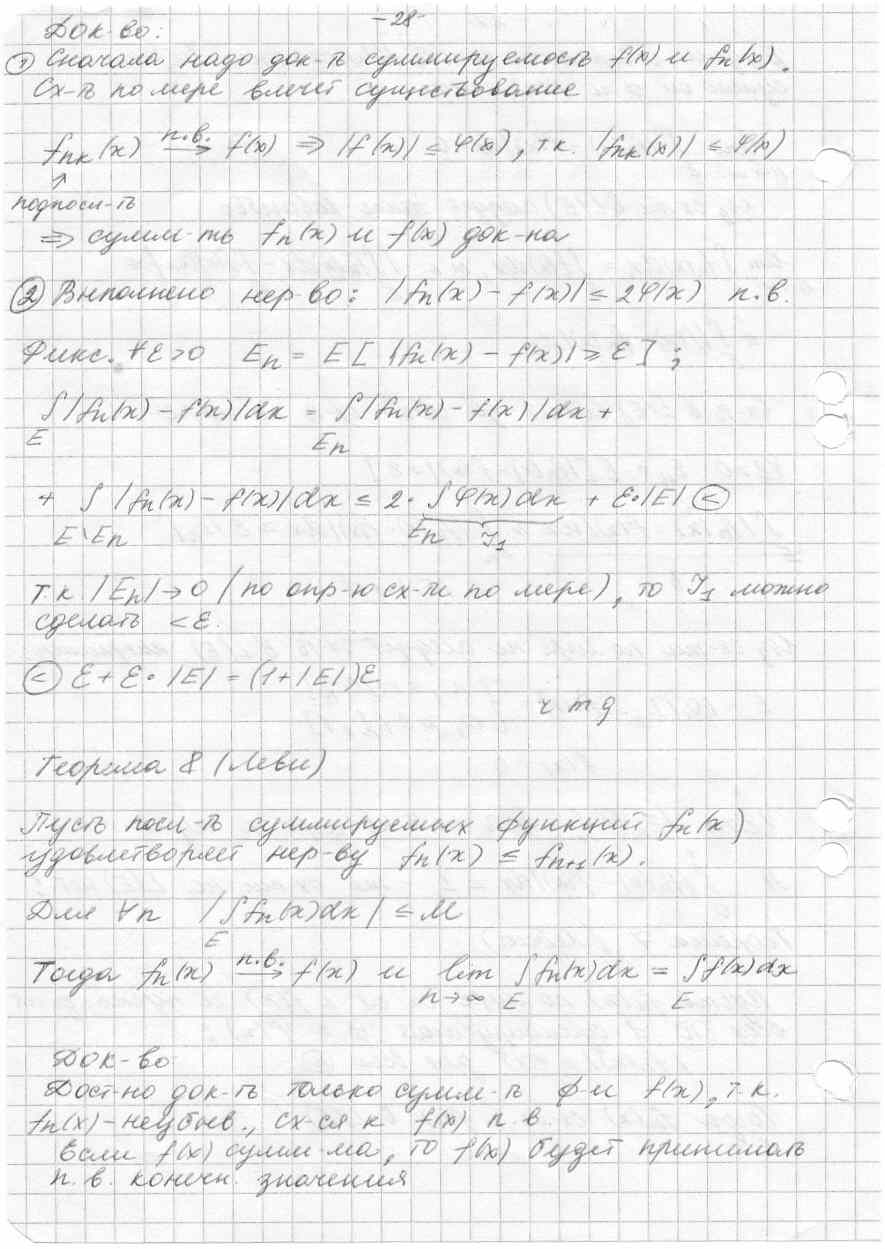 -28-
Док-во:
① Сначала надо док-ть суммируемость f(x) и fn(x).
Сх-ть по мере влечет существование
fnk(x) п.в.→ f(x) ⇒ |f(x)| ≤ φ(x), т.к. |fnk(x)| ≤ φ(x)
↑
подпосл-ть
⇒ сумм-ть fn(x) и f(x) док-на
② Выполнено нер-во: |fn(x) - f(x)| ≤ 2φ(x) п.в.
Фикс. ∀ε>0 En = E[ |fn(x) - f(x)| ≥ ε ];
∫E |fn(x) - f(x)|dx = ∫En |fn(x) - f(x)|dx +
+ ∫E\En |fn(x) - f(x)|dx ≤ 2· ∫En φ(x)dx + ε·|E| <
J1
т.к. |En| → 0 (по опр-ю сх-ти по мере), то J1 можно
сделать < ε.
< ε + ε·|E| = (1+|E|)ε
ч т д
Теорема 8 (Леви)
Пусть посл-ть суммируемых функций fn(x)
удовлетворяет нер-ву fn(x) ≤ fn+1(x).
Для ∀n |∫E fn(x)dx| ≤ M
Тогда fn(x) п.в.→ f(x) и lim n→∞ ∫E fn(x)dx = ∫E f(x)dx
Док-во
Дост-но док-ть только сумм-ть ф-и f(x), т.к.
fn(x) - неубыв., сх-ся к f(x) п.в.
Если f(x) сумм-ма, то f(x) будет принимать
п.в. конечн. значения